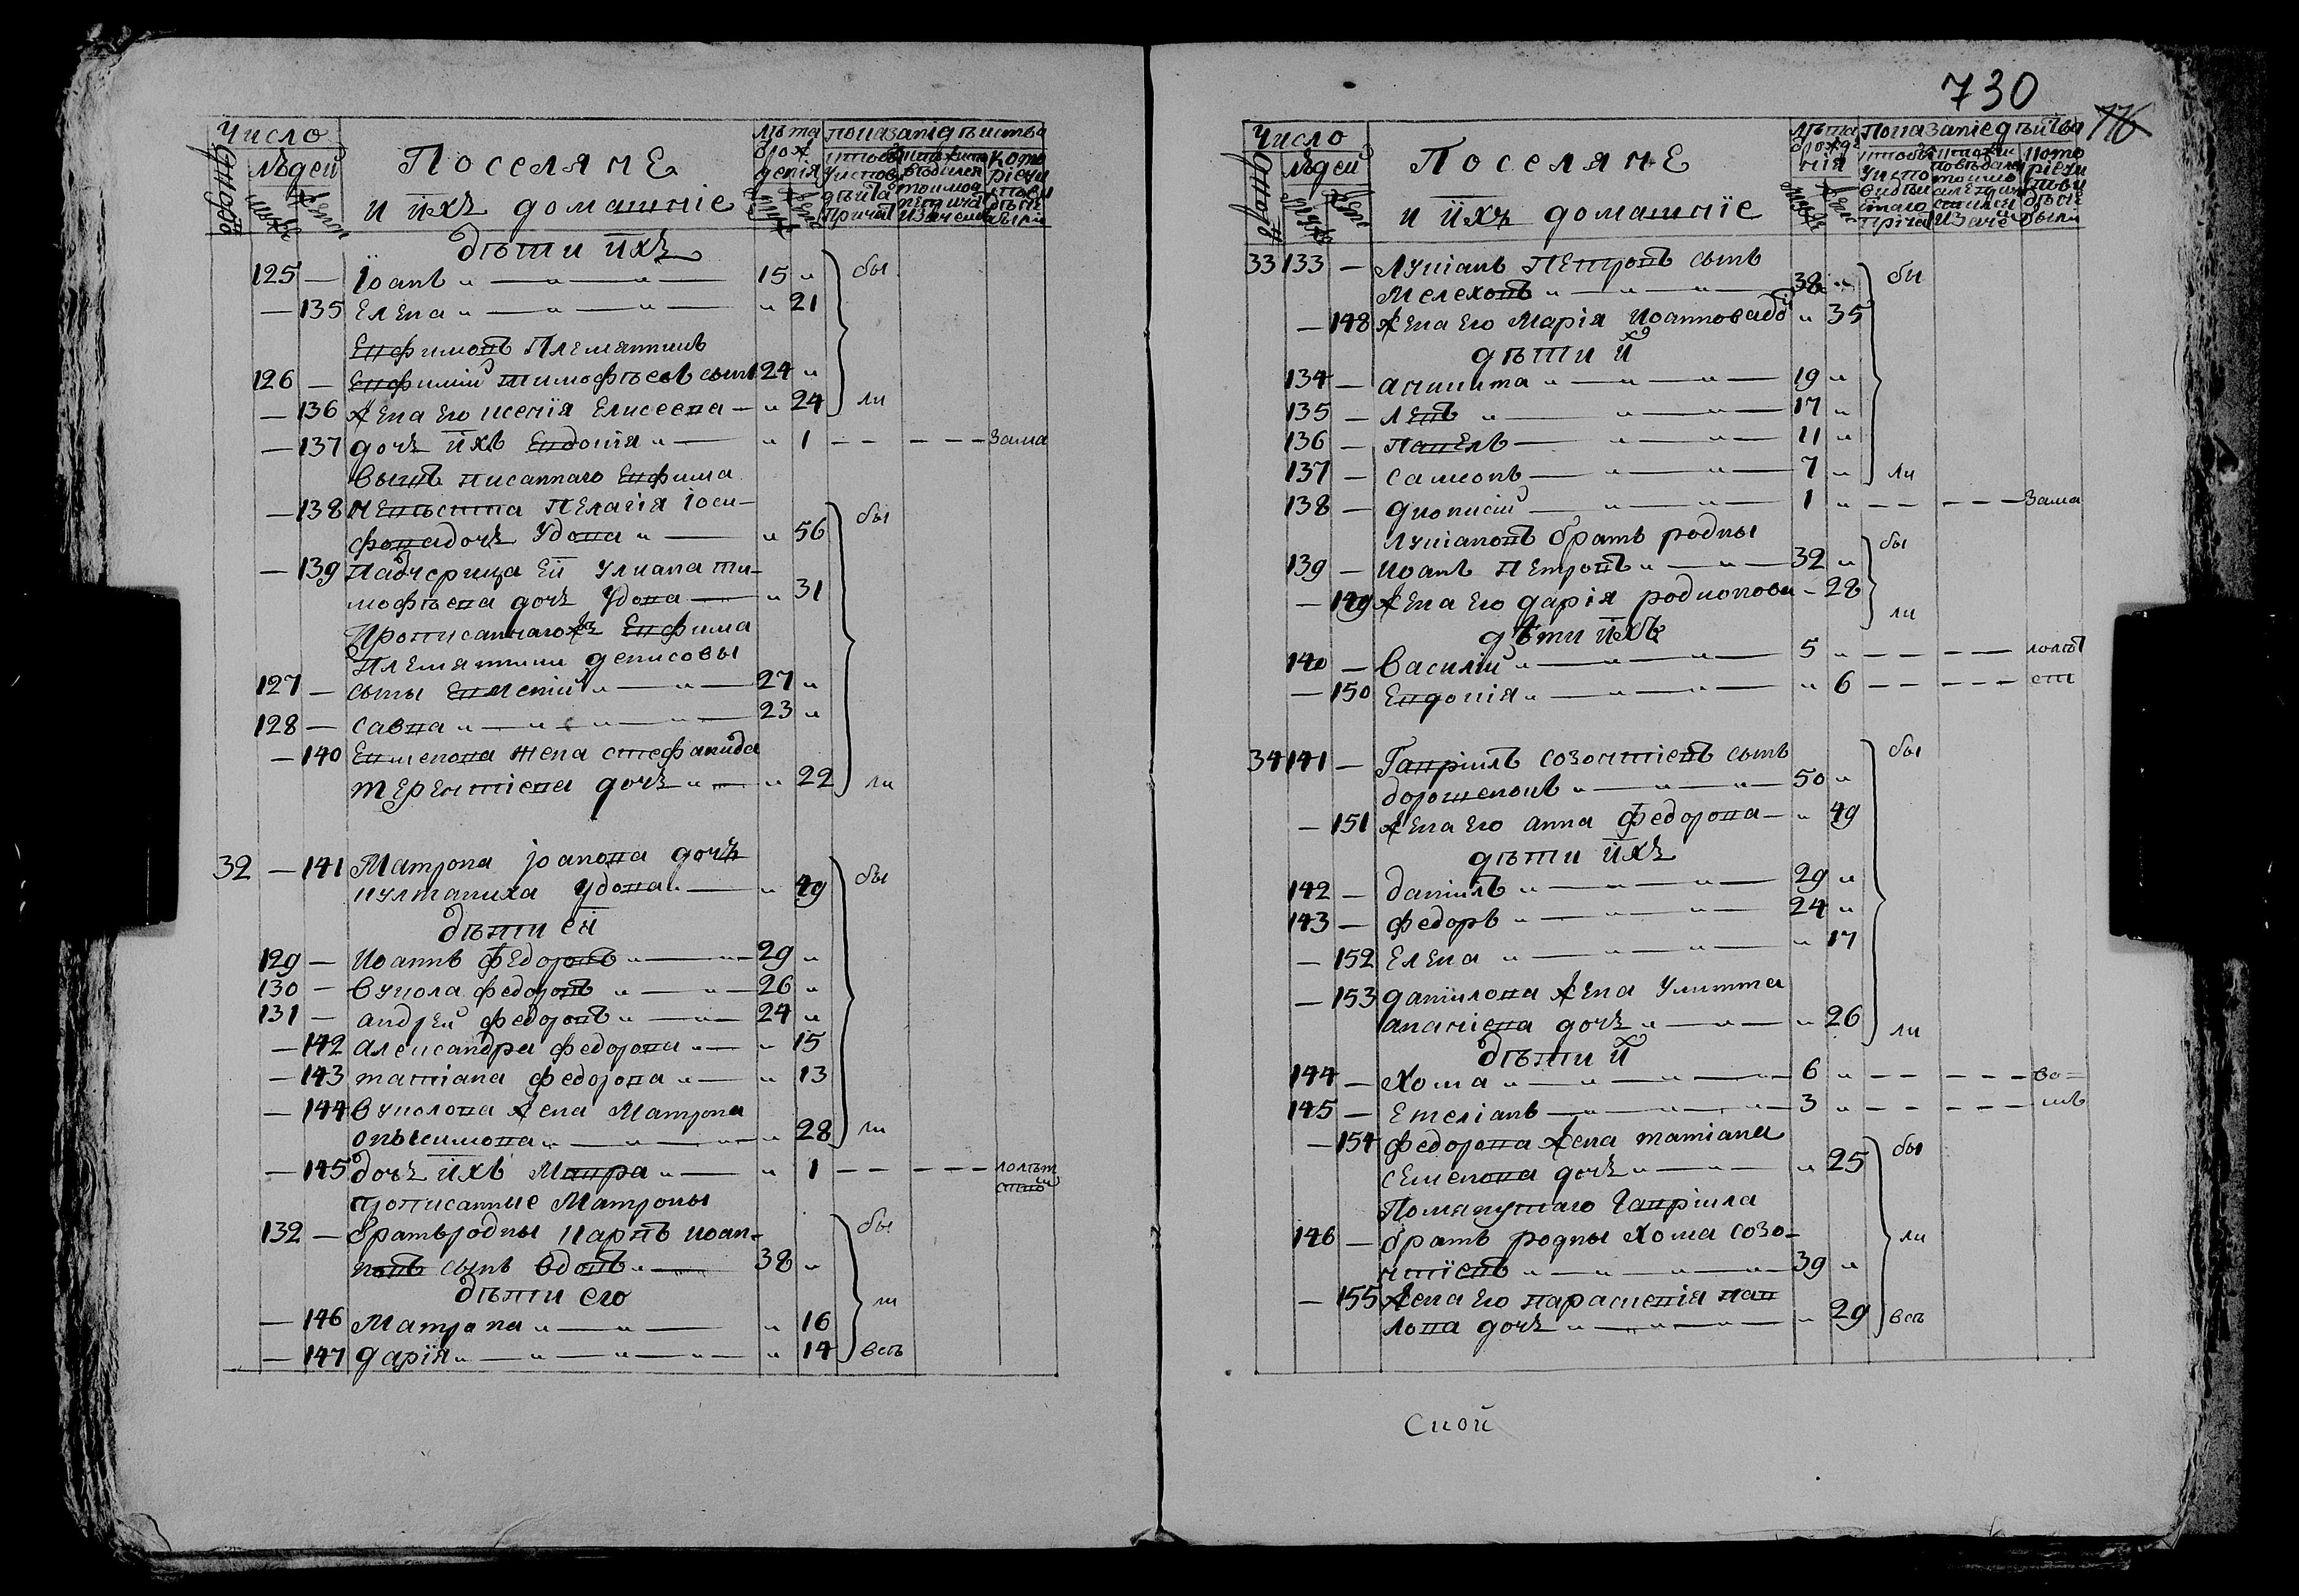 Число
людей
Поселяне
и ихъ домашніе
Лѣта рожденія
показаніе дѣйства
дѣти ихъ
125 — Іоанъ " — " — " — 15 " бы
— 135 Елена " — " — " — " 21
Евфимовъ племянникъ
126 — Евфимій тимофѣевъ сынъ 24 "
— 136 жена его ксенія Елисеева — " 24 ли
— 137 дочъ ихъ Евдокія " — " 1 — — — — — зама
вышъ писаннаго Евфима
— 138 невѣстка Пелагія Іоси-
фова дочъ Удова " — " 56 бы
— 139 Падчерица ей улиана ти-
мофѣева дочъ Удова — " 31
Прописаннагожъ Евфима
племянники денисовы
127 — сыны Евменій " — " — 27 "
128 — савва " — " — " — 23 "
— 140 Евменова жена стефанида
терентіева дочъ " — " 22 ли
32 — 141 Матрона іоанова дочъ
култаниха Удова " — " 49 бы
дѣти ей
129 — Иоаннъ федоровъ " — " — 29 "
130 — Вукола федоровъ " — " — 26 "
131 — андрей федоровъ " — " — 24 "
— 142 александра федорова " — " 15
— 143 татіана федорова " — " 13
— 144 Вуколова жена Матрона
онысимова " — " — " 28 ли
— 145 дочъ ихъ Мавра " — " 1 — — — — — лолѣт
ствій
прописанные Матроны
132 — братъ родны карпъ иоан-
новъ сынъ вдовъ " — 38 " бы
дѣти его ли
— 146 Матрона " — " — " 16
— 147 дарія " — " — " — " 14 всѣ
730
116
Число
людей
Поселяне
и ихъ домашніе
Лѣта рожденія
Показаніе дѣйства
33 133 — Лукіанъ Петровъ сынъ
Мелеховъ " — " — " — 38 " бы
— 148 жена его Марія Иоаннова дочъ " 35
дѣти их
134 — аникита " — " — " — 19 "
135 — левъ " — " — " — 17 "
136 — павелъ — " — " — 11 "
137 — самсонъ — " — " — 7 " ли
138 — дионисій — " — " — 1 " — — — — — зама
лукіановъ братъ родны
139 — иоанъ петровъ " — " — 32 " бы
— 149 жена его дарія родионова — 28 ли
дѣти ихъ
140 — василій " — " — " — 5 " — — — — — лолѣт
— 150 Евдокія " — " — " — " 6 — — — — — ств
34 141 — Гавріилъ созонтіевъ сынъ бы
дорошенокъ " — " — " — 50 "
— 151 жена его анна федорова — " 49
дѣти ихъ
142 — даніилъ " — " — " — 29 "
143 — федоръ " — " — " — 24 "
— 152 Елена " — " — " — " 17
— 153 даніилова жена улитта
ананіева дочъ " — " — " 26 ли
дѣти их
144 — хома " — " — " — 6 " — — — — — во=
145 — Емеліанъ — " — " — 3 " — — — — — имъ
— 154 федорова жена татіана
семенова дочъ " — " — " 25 бы
Помянутаго Гавріила
146 — братъ родны хома созо- ли
нтіевъ " — " — " — 39 "
— 155 жена его параскевія пав
лова дочъ " — " — " 29 всѣ
Ской